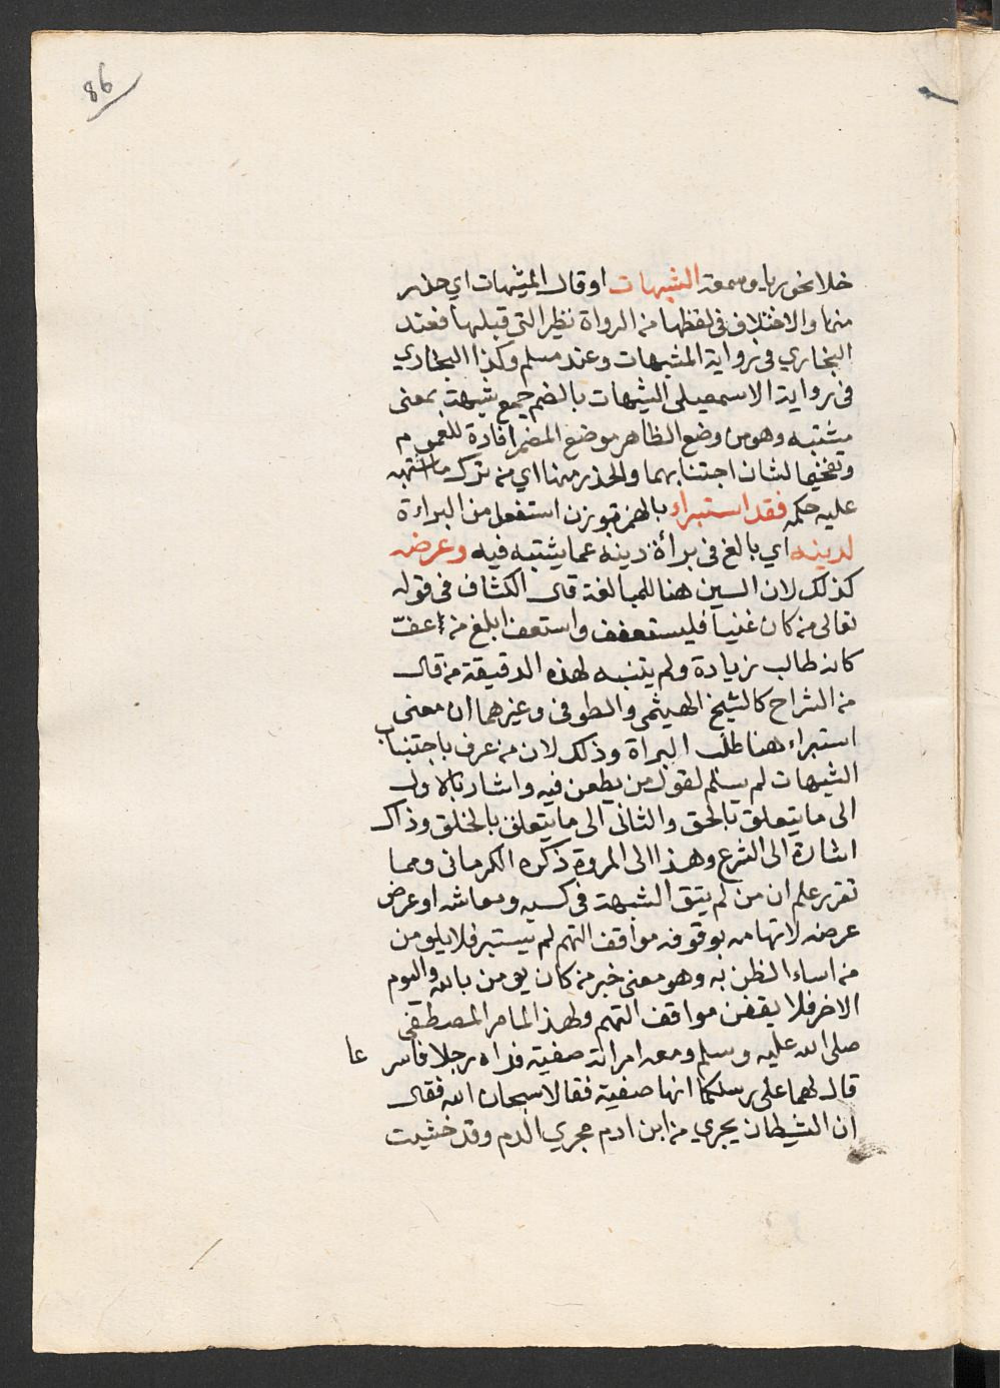 86
خلا نحو رياء وسمعة الشبهات او قال المشبهات اي حذر
منها والاختلاف في لفظها من الرواة نظير التي قبلها فعند
البخاري في رواية المشبهات وعند مسلم وكذا البخاري
في رواية الاسمعيلي الشبهات بالضم جمع شبهة بمعنى
مشتبه وهو من وضع الظاهر موضع المضمر افادة للعموم
وتفخيما لشان اجتنابهما والحذر منها اي من ترك ما اشتبه
عليه حكمه فقد استبراء بالهمز بوزن استفعل من البراءة
لدينه اي بالغ في برأة دينه عما يشتبه فيه وعرضه
كذلك لان السين هنا للمبالغة قال الكشاف في قوله
تعالى من كان غنيا فليستعفف واستعف ابلغ من عفّ
كانه طالب زيادة ولم يتنبه لهذه الدقيقة من قال
من الشراح كالشيخ الهيثمي والطوفي وغيرهما ان معنى
استبراء هنا طلب البراة وذلك لان من عرف باجتناب
الشبهات لم يسلم لقول من يطعن فيه واشار بالاول
الى ما يتعلق بالحق والثاني الى ما يتعلق بالخلق وذاك
اشارة الى الشرع وهذا الى المروة ذكره الكرماني ومما
تقرر علم ان من لم يتق الشبهة في كسبه ومعاشه او عرض
عرضه لاتهامه بوقوفه مواقف التهم لم يستبر فلا يلومن
من اساء الظن به وهو معنى خبر من كان يومن بالله واليوم
الاخر فلا يقفن مواقف التهم ولهذا لما مر المصطفى
صلى الله عليه وسلم ومعه امراته صفية فراه رجلا فاسر عا
قال لهما على رسلكما انها صفية فقالا سبحان الله فقال
ان الشيطان يجري من ابن ادم مجري الدم وقد خشيت